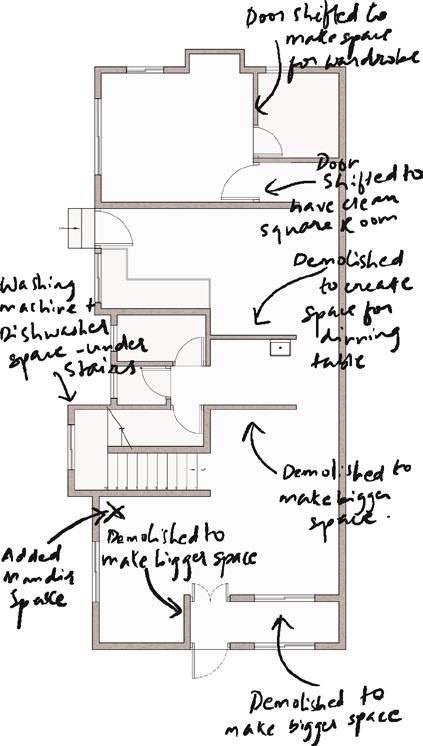 Door shifted to
make space
for wardrobe
Door
shifted to
have clean
square room
Demolished
to create
space for
dinning
table
Washing
machine +
Dishwasher
space - under
Stairs
Demolished to
make bigger
space.
Added
Mandir
Space
Demolished to
make bigger space
Demolished to
make bigger space